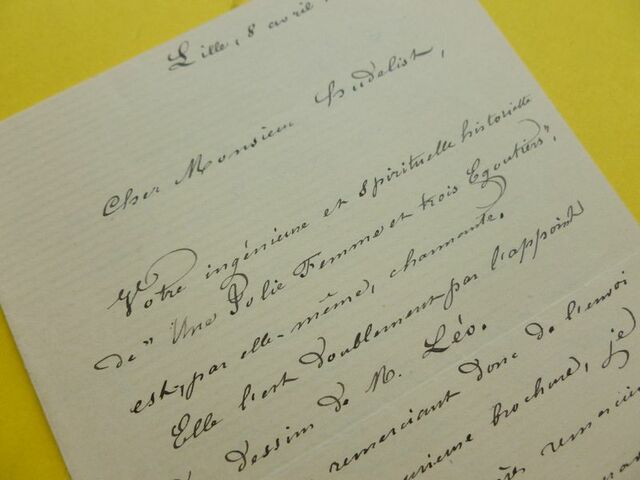 Lille, 8 avril
Cher Monsieur Hudelist,
Votre ingénieuse et spirituelle historiette
de "Une Jolie Femme et trois Egoutiers",
est, par elle-même, charmante.
Elle l'est doublement par l'appoint
dessin de M. Léo.
remerciant donc de l'envoi
brochure, je